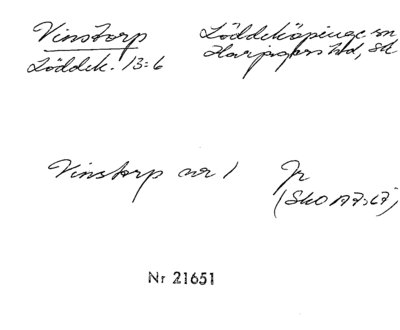 Vinstorp
Löddeköpinge sn
Löddek. 13:6
Harjagers hd, Sk
Vinstorp nr 1
Jr
(SkO 17:67)
Nr 21651